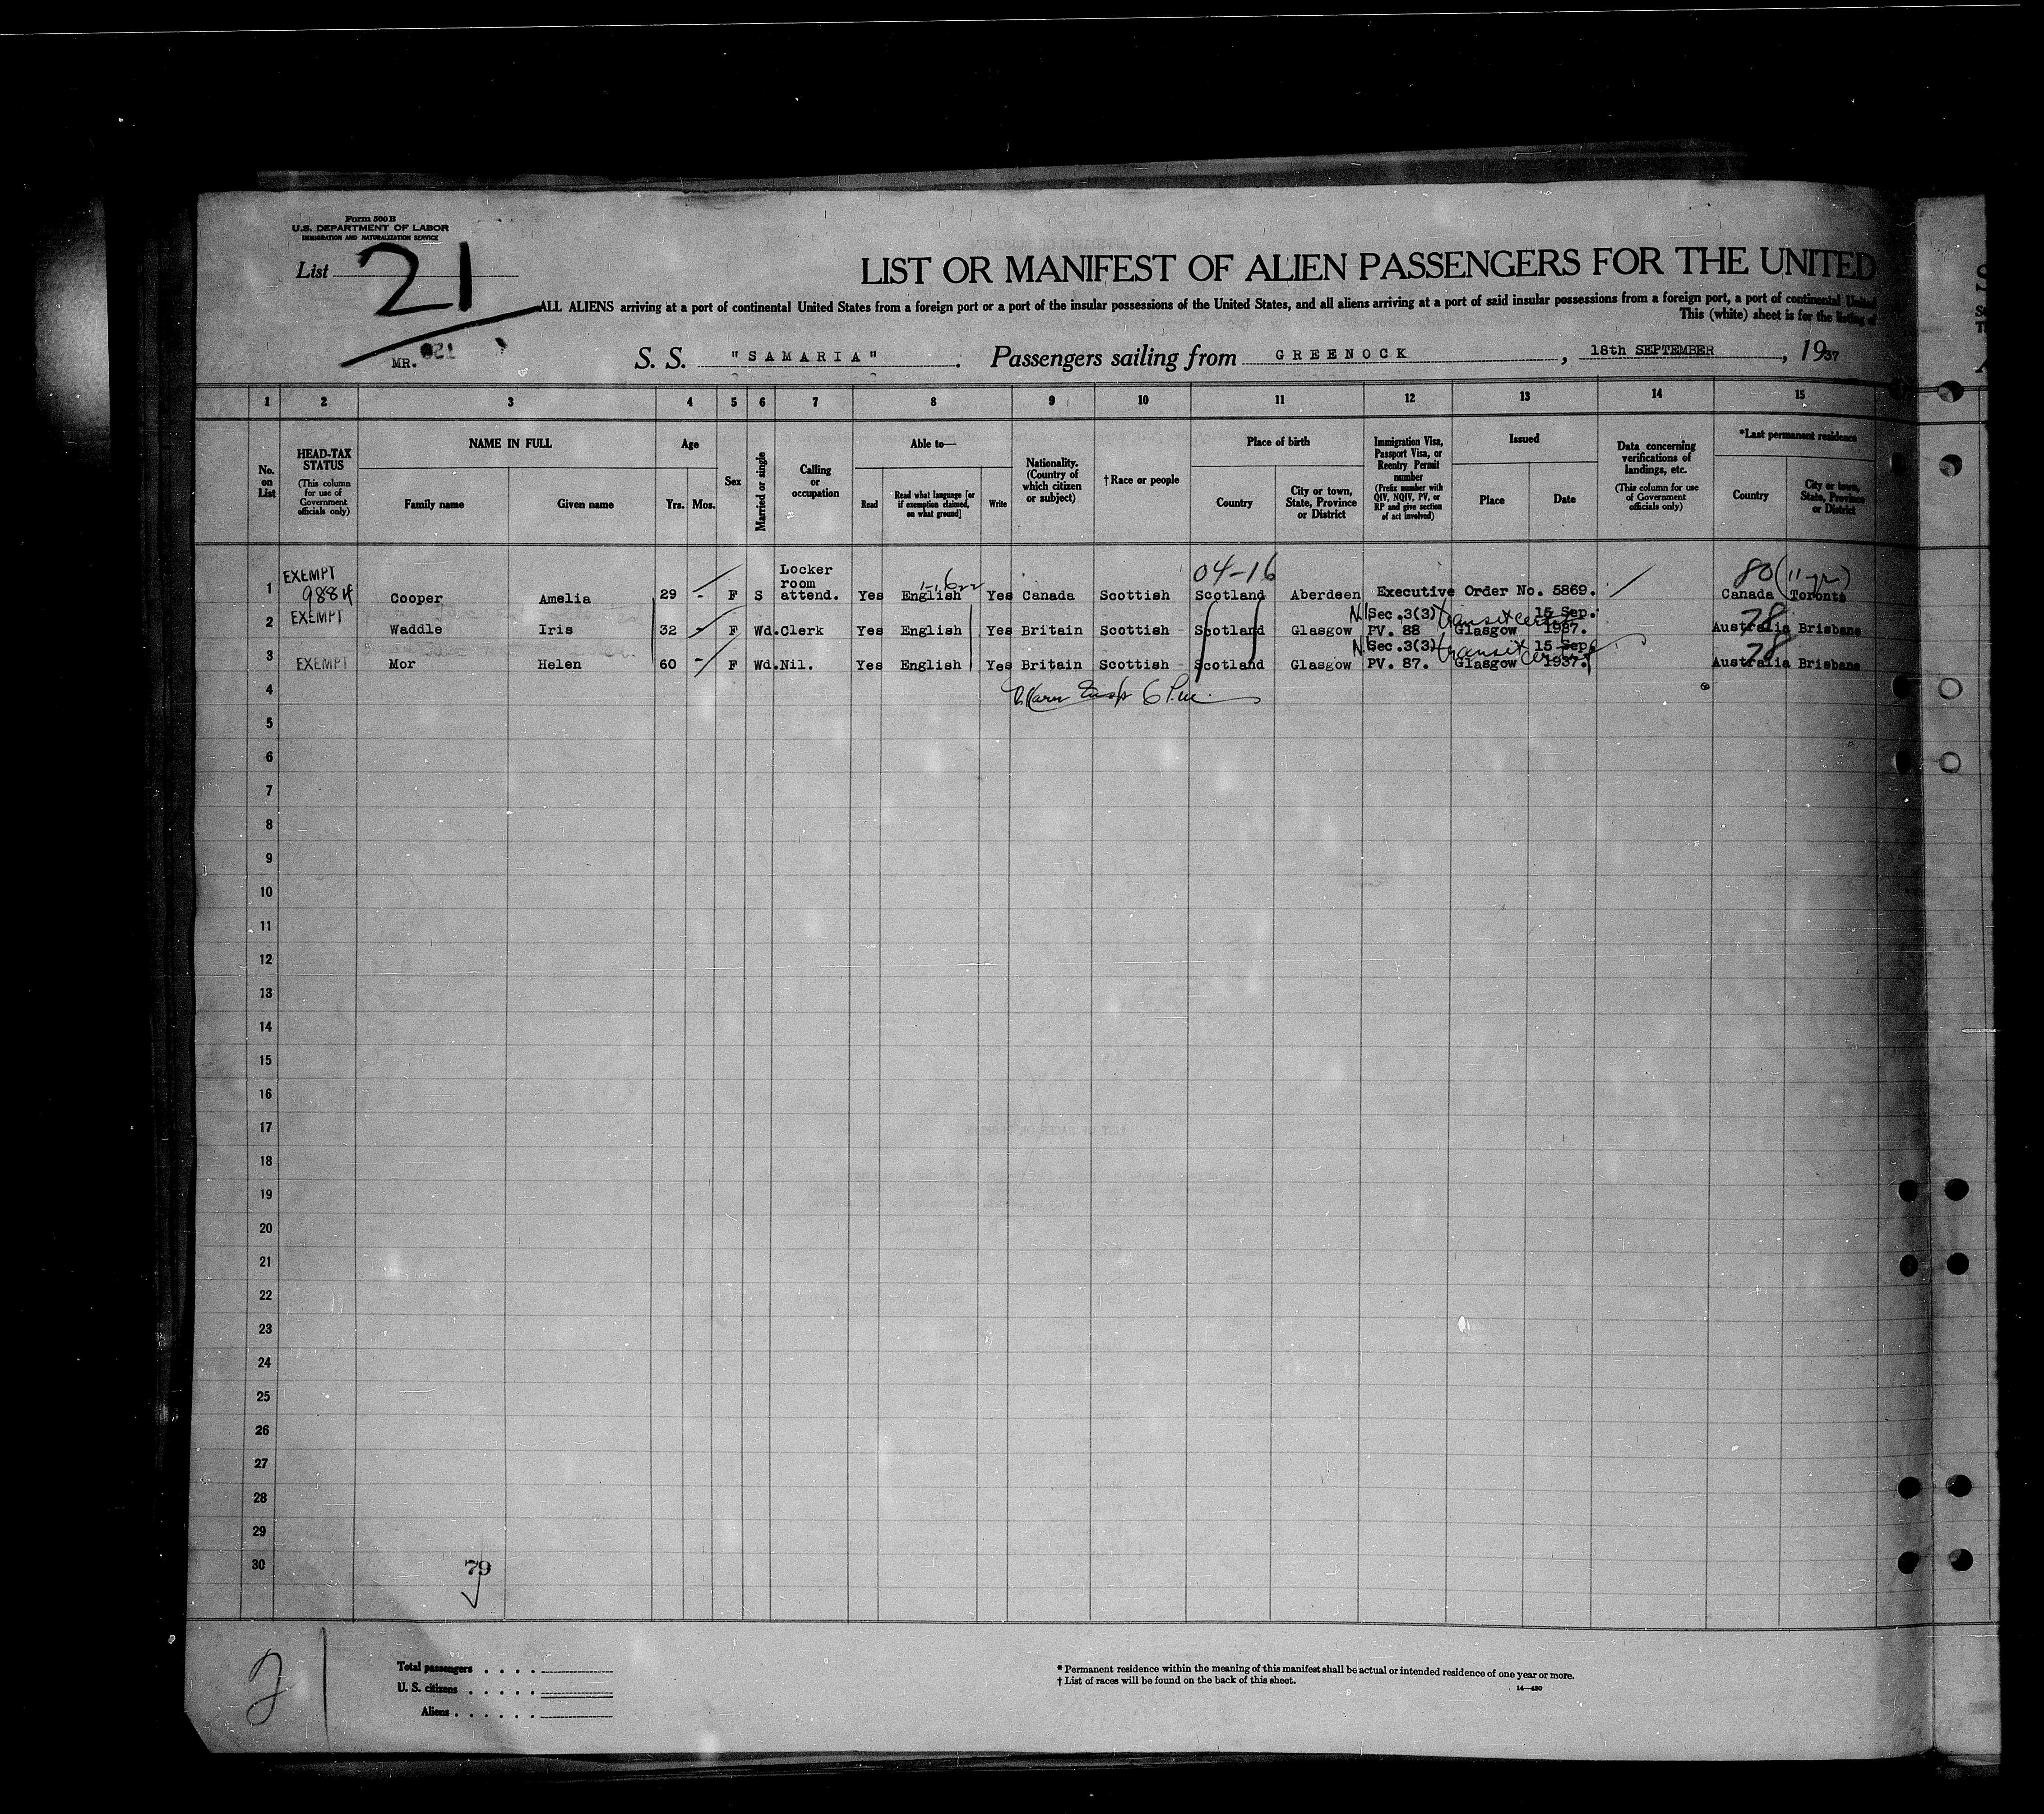 Form 500 B
U.S. DEPARTMENT OF LABOR
IMMIGRATION AND NATURALIZATION SERVICE
List 21
LIST OR MANIFEST OF ALIEN PASSENGERS FOR THE UNITED
ALL ALIENS arriving at a port of continental United States from a foreign port or a port of the insular possessions of the United States, and all aliens arriving at a port of said insular possessions from a foreign port, a port of continental United
This (white) sheet is for the listing of
MR. 021
S. S. "SAMARIA". Passengers sailing from GREENOCK, 18th SEPTEMBER, 1937
1 2 3 4 5 6 7 8 9 10 11 12 13 14 15
No. on List
HEAD-TAX STATUS (This column for use of Government officials only)
NAME IN FULL
Family name Given name
Age
Yrs. Mos.
Sex
Married or single
Calling or occupation
Able to—
Read Read what language [or if exemption claimed, on what ground] Write
Nationality. (Country of which citizen or subject)
†Race or people
Place of birth
Country City or town, State, Province or District
Immigration Visa, Passport Visa, or Reentry Permit number (Prefix number with QIV, NQIV, PV, or RP and give section of act involved)
Issued
Place Date
Data concerning verifications of landings, etc. (This column for use of Government officials only)
*Last permanent residence
Country City or town, State, Province or District
EXEMPT 04-16 80 (11 yr)
1 Cooper Amelia 29 - F S Locker room attend. Yes English Yes Canada Scottish Scotland Aberdeen Executive Order No. 5869. Canada Toronto
2 EXEMPT Waddle Iris 32 - F Wd. Clerk Yes English Yes Britain Scottish Scotland Glasgow N Sec.3(3) PV. 88 transit certif Glasgow 15 Sep. 1937. 78 Australia Brisbane
3 EXEMPT Mor Helen 60 - F Wd. Nil. Yes English Yes Britain Scottish Scotland Glasgow N Sec.3(3) PV. 87. transit certif Glasgow 15 Sep. 1937. 78 Australia Brisbane
4
5
6
7
8
9
10
11
12
13
14
15
16
17
18
19
20
21
22
23
24
25
26
27
28
29
30
79
21
Total passengers . . . .
U. S. citizens . . . . .
Aliens . . . . . .
* Permanent residence within the meaning of this manifest shall be actual or intended residence of one year or more.
† List of races will be found on the back of this sheet.
14—430